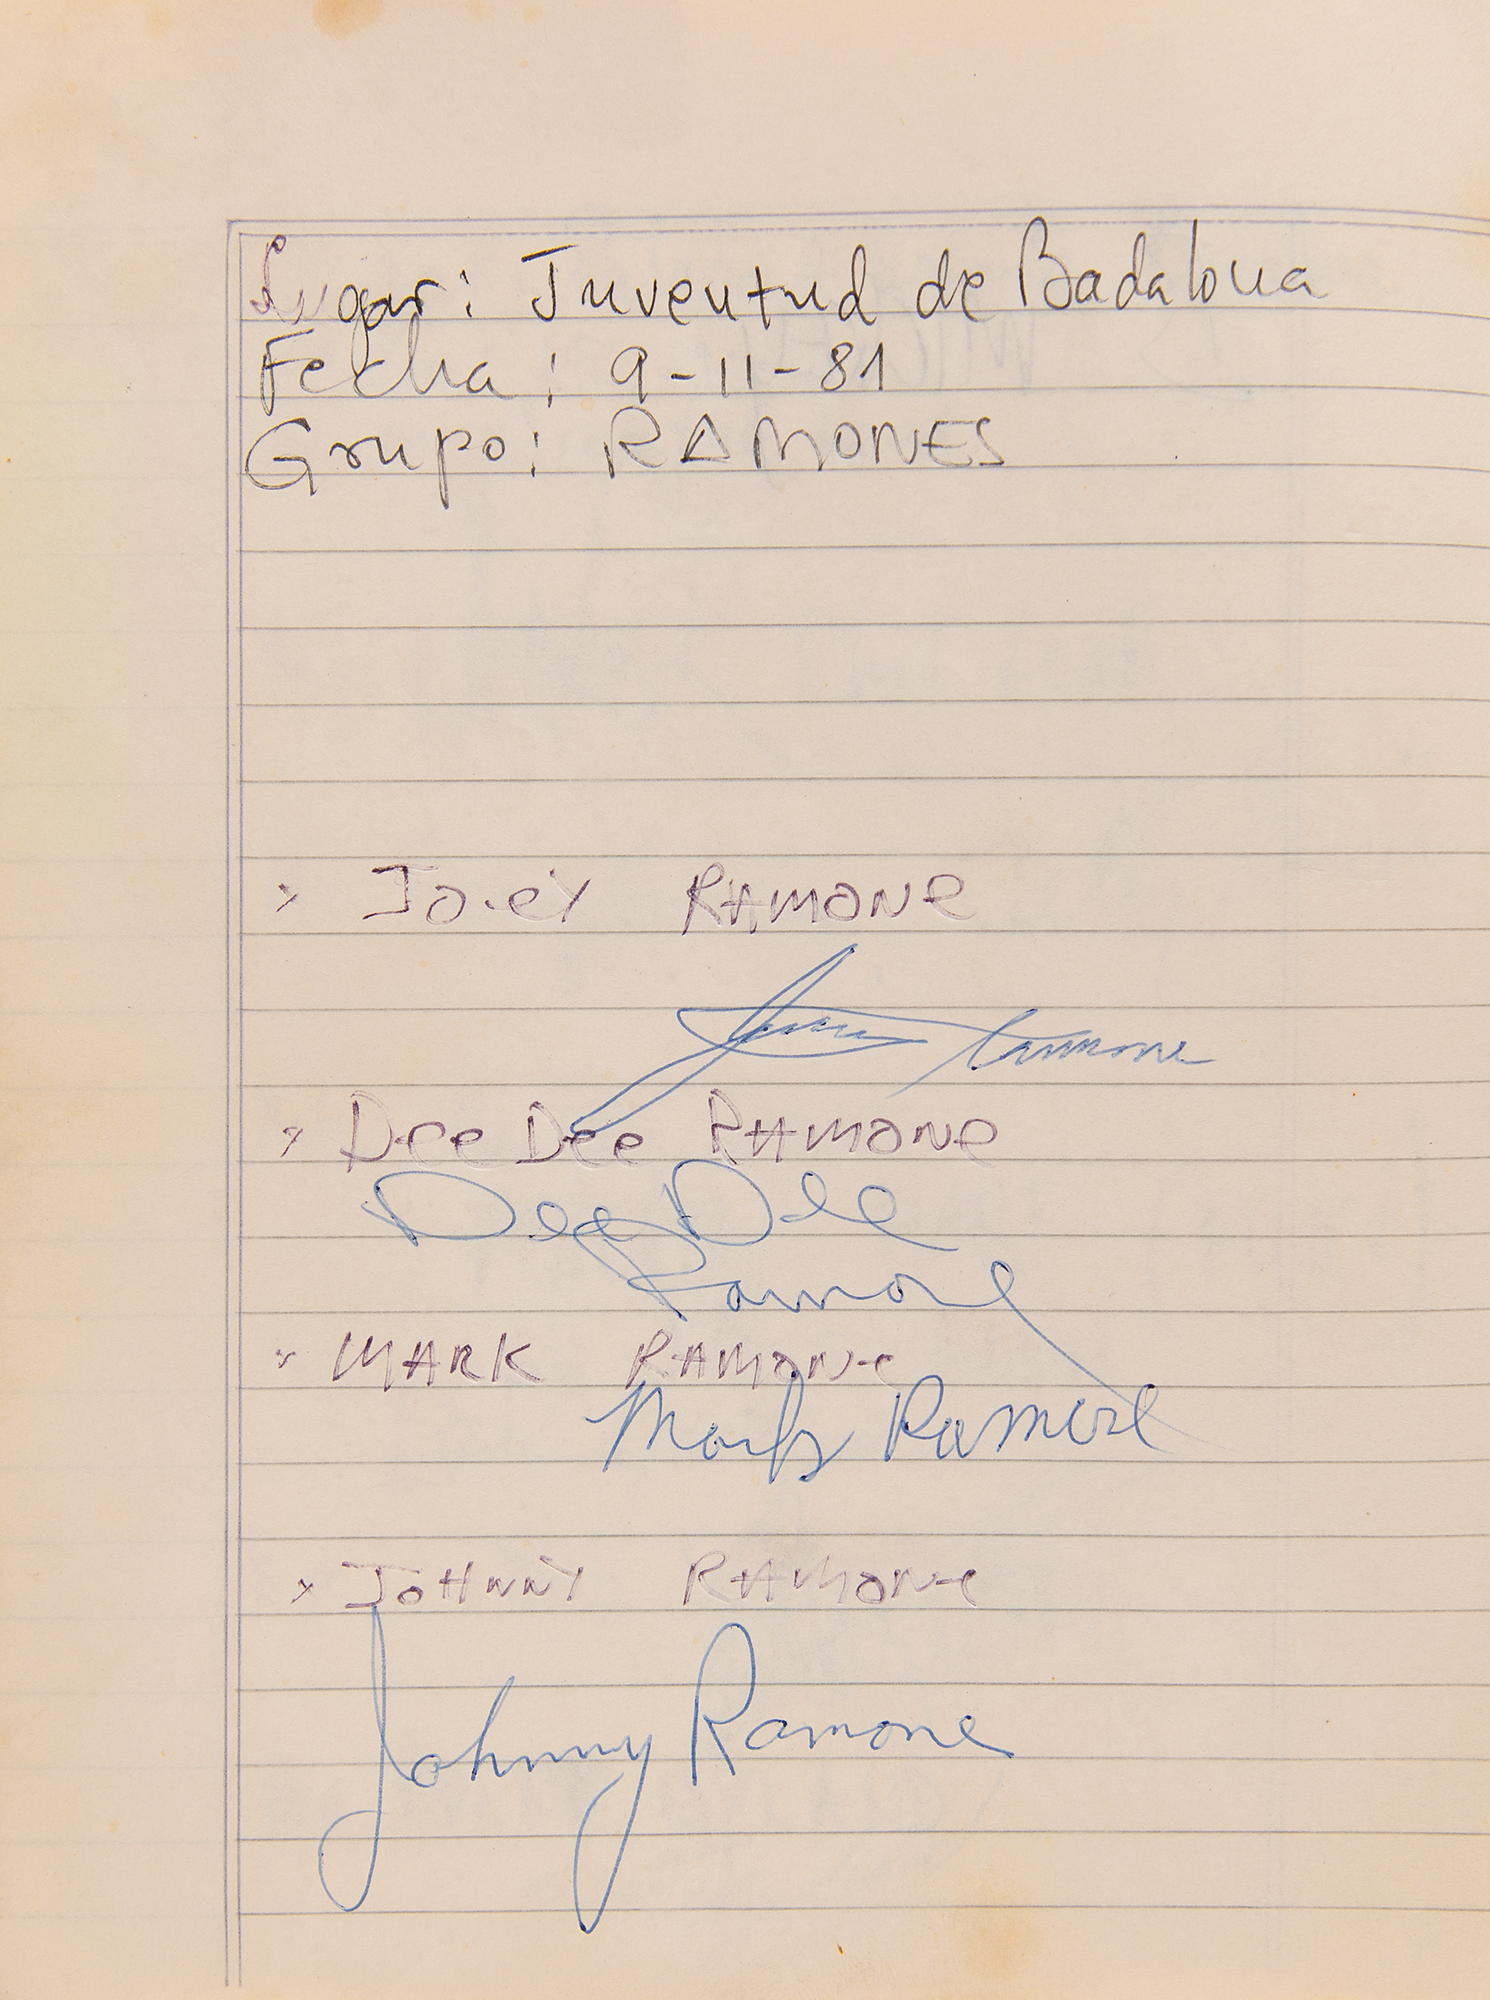 Lugar: Juventud de Badalona
Fecha: 9-11-81
Grupo: RAMONES
JOEY RAMONE
Ramone
Dee Dee RAMONE
Dee Dee
Ramone
MARK RAMONE
Mark Ramone
JOHNNY RAMONE
Johnny Ramone